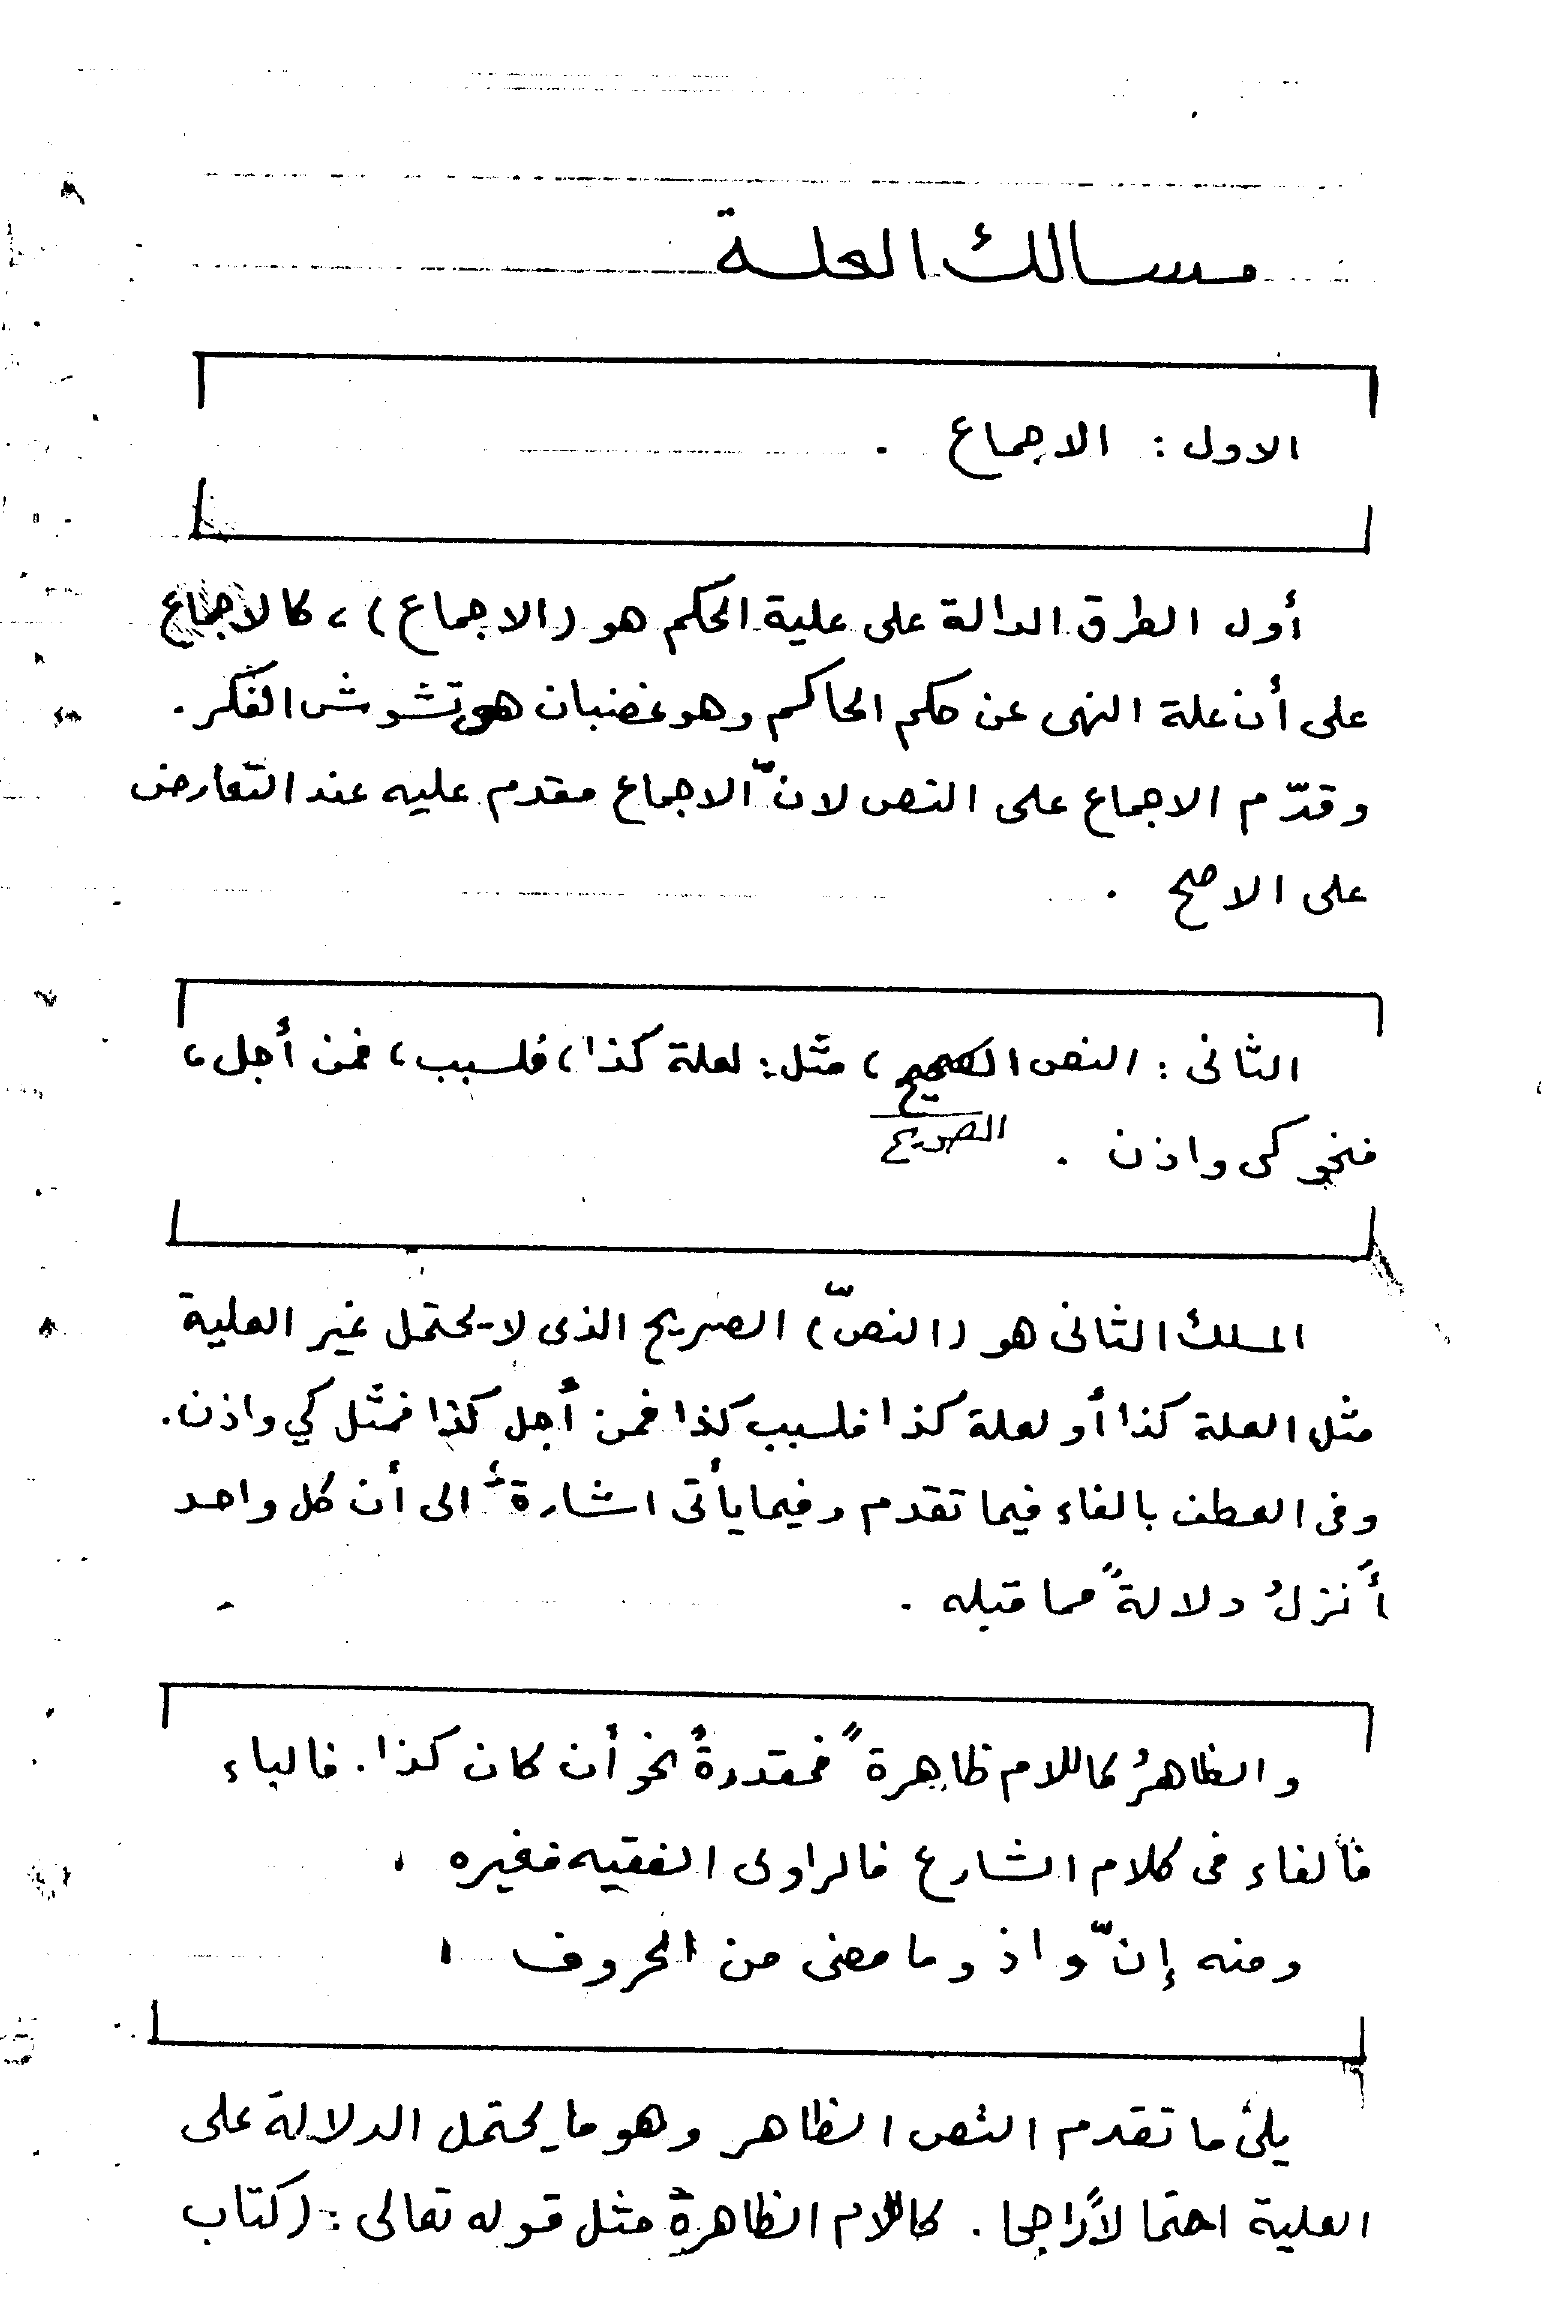 مسالك العلة
الاول : الاجماع .
أول الطرق الدالة على علية الحكم هو (الاجماع) ، كالاجماع
على أن علة النهى عن حكم الحاكم وهو غضبان هو تشوش الفكر .
وقدّم الاجماع على النص لانّ الاجماع مقدم عليه عند التعارض
على الاصح .
الثانى : النص الصحيح ، مثل : لعلة كذا ، فلسبب ، فمن أجل ،
فنحو كى واذن .
الصريح
المسلك الثانى هو (النصّ) الصريح الذى لا يحتمل غير العلية
مثل العلة كذا أو لعلة كذا فلسبب كذا فمن أجل كذا فمثل كي واذن .
وفى العطف بالفاء فيما تقدم وفيما يأتى اشارة الى أن كل واحد
أَنزلُ دلالةً مما قبله .
والظاهرُ كاللام ظاهرةً فمقدرةً نحو أن كان كذا . فالباء
فالفاء فى كلام الشارع فالراوى الفقيه فغيره .
ومنه إنّ واذ وما مضى من الحروف .
يلى ما تقدم النص الظاهر وهو ما يحتمل الدلالة على
العلية احتمالاً راجحا . كاللام الظاهرة مثل قوله تعالى : (كتاب